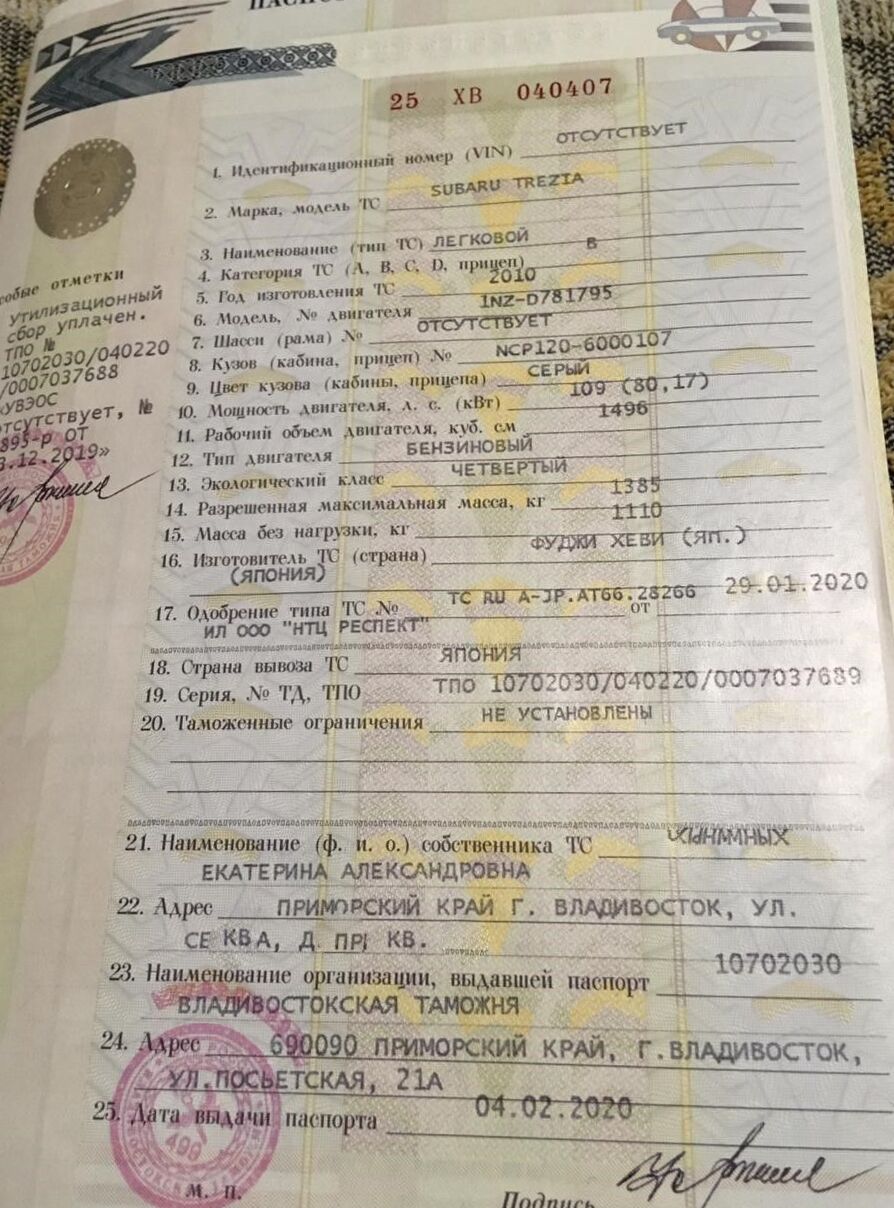 25 ХВ 040407
1. Идентификационный номер (VIN) ОТСУТСТВУЕТ
2. Марка, модель ТС SUBARU TREZIA
3. Наименование (тип ТС) ЛЕГКОВОЙ
4. Категория ТС (А, В, С, D, прицеп) В
5. Год изготовления ТС 2010
6. Модель, № двигателя 1NZ-D781795
7. Шасси (рама) № ОТСУТСТВУЕТ
8. Кузов (кабина, прицеп) № NCP120-6000107
9. Цвет кузова (кабины, прицепа) СЕРЫЙ
10. Мощность двигателя, л. с. (кВт) 109 (80,17)
11. Рабочий объем двигателя, куб. см 1496
12. Тип двигателя БЕНЗИНОВЫЙ
13. Экологический класс ЧЕТВЕРТЫЙ
14. Разрешенная максимальная масса, кг 1385
15. Масса без нагрузки, кг 1110
16. Изготовитель ТС (страна) ФУДЖИ ХЕВИ (ЯП.)
(ЯПОНИЯ)
17. Одобрение типа ТС № ТС RU А-JP.АТ66.28266 от 29.01.2020
ИЛ ООО "НТЦ РЕСПЕКТ"
18. Страна вывоза ТС ЯПОНИЯ
19. Серия, № ТД, ТПО ТПО 10702030/040220/0007037689
20. Таможенные ограничения НЕ УСТАНОВЛЕНЫ
21. Наименование (ф. и. о.) собственника ТС
ЕКАТЕРИНА АЛЕКСАНДРОВНА
22. Адрес ПРИМОРСКИЙ КРАЙ Г. ВЛАДИВОСТОК, УЛ.
КВ.
23. Наименование организации, выдавшей паспорт 10702030
ВЛАДИВОСТОКСКАЯ ТАМОЖНЯ
24. Адрес 690090 ПРИМОРСКИЙ КРАЙ, Г.ВЛАДИВОСТОК,
УЛ.ПОСЬЕТСКАЯ, 21А
25. Дата выдачи паспорта 04.02.2020
М. П.
Подпись
отметки
УТИЛИЗАЦИОННЫЙ
СБОР УПЛАЧЕН.
ТПО №
10702030/040220
/0007037688
«УВЭОС
ОТСУТСТВУЕТ, №
895-р ОТ
.12.2019»